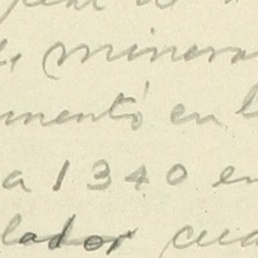 de minera
mentó en l
a 1340 en
lador cua